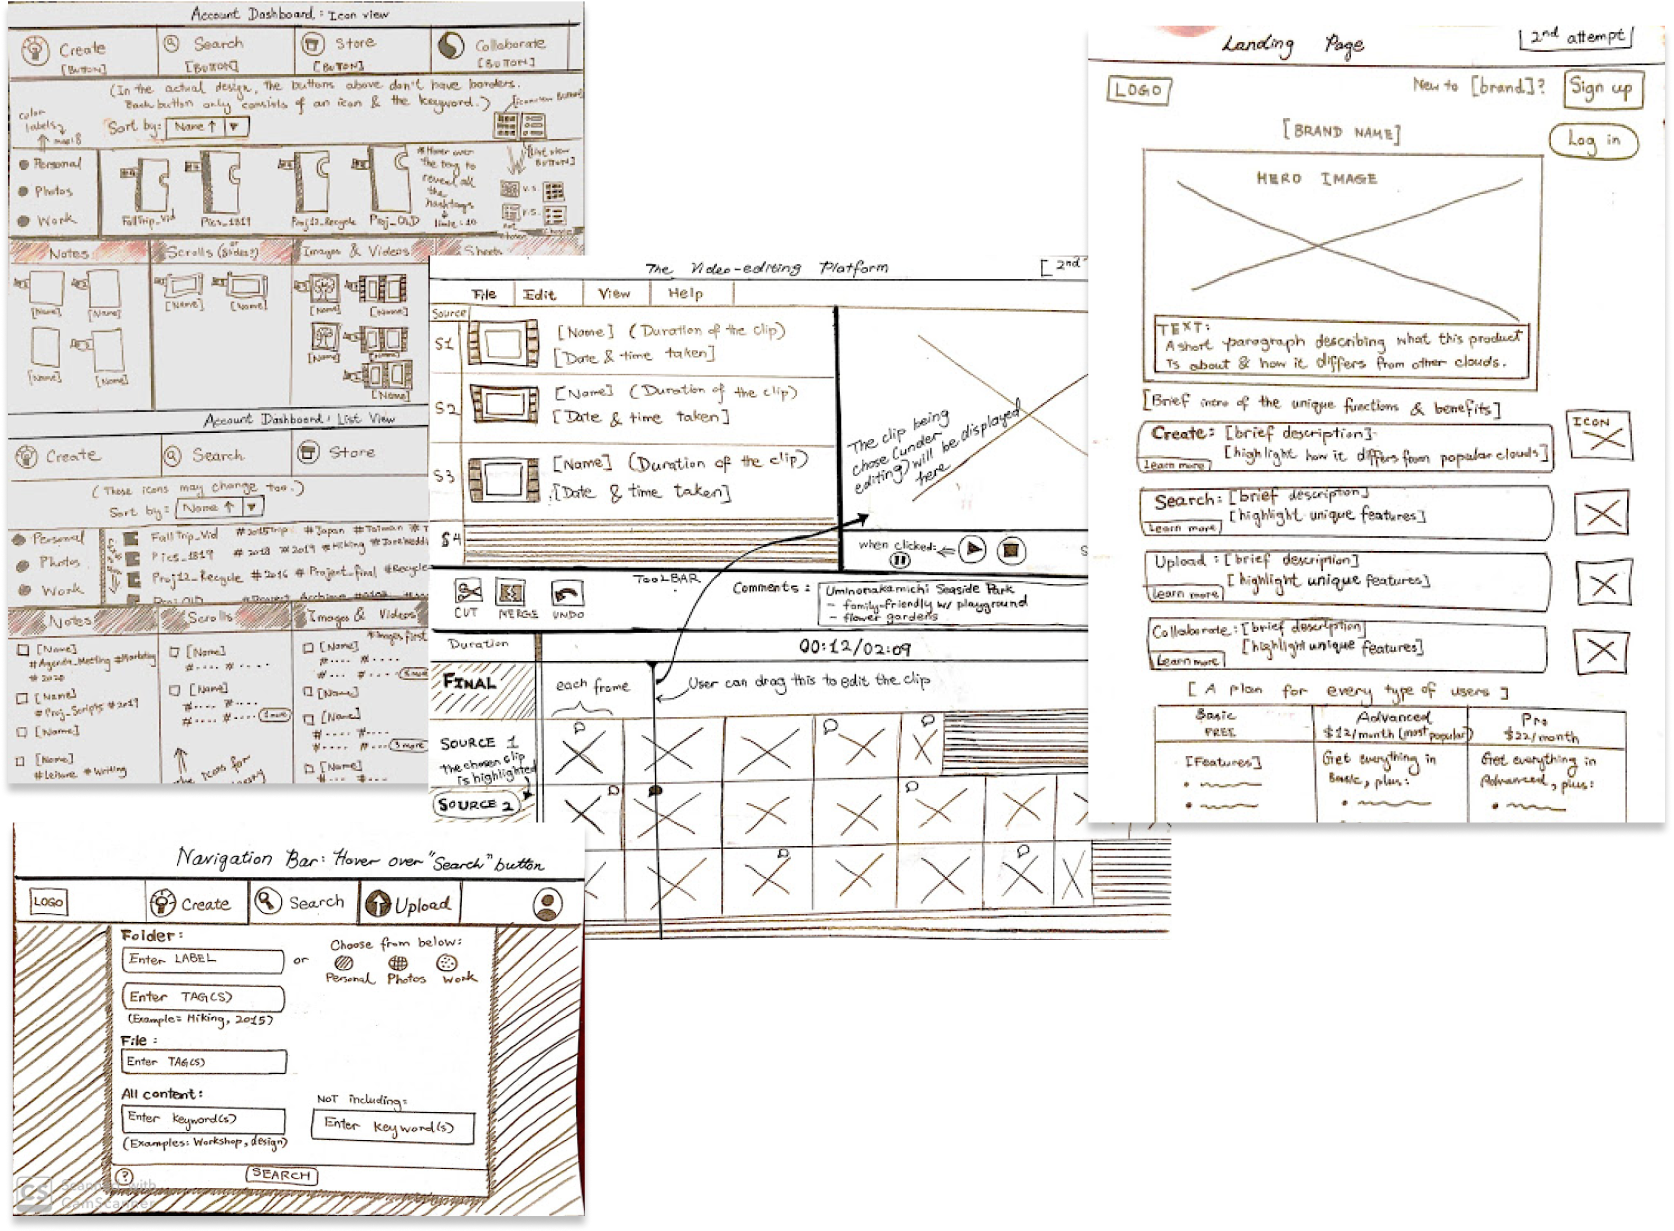 Account Dashboard: Icon view
Create
[BUTTON]
Search
[BUTTON]
Store
[BUTTON]
Collaborate
[BUTTON]
(In the actual design, the buttons above don't have borders.
Each button only consists of an icon & the keyword.)
[icon view BUTTON]
color
labels
max: 8
Sort by: Name ↑
Personal
Photos
Work
FallTrip_Vid
Pics_1819
Proj12_Recycle
Proj_OLD
*Hover over
the tag to
reveal all
the
hashtags
limit: 10
[list view
BUTTON]
v.s.
v.s.
Notes
Scrolls (or Slides?)
Images & Videos
Sheets
[Name]
[Name]
[Name]
[Name]
[Name]
[Name]
[Name]
[Name]
[Name]
[Name]
[Name]
Account Dashboard: List View
Create
Search
Store
(These icons may change too.)
Sort by: Name ↑
Personal
Photos
Work
FallTrip_Vid #2015Trip #Japan #Taiwan #T
Pics_1819 #2018 #2019 #Hiking
Proj12_Recycle #2016 #Project_final #Recycle
Proj_OLD
Notes
Scrolls
Images & Videos
*Images first
[Name]
#Agenda_Meeting #Marketing
#2020
[Name]
#Proj_Scripts #2019
[Name]
[Name]
#Leisure #Writing
[Name]
#.... #....
[Name]
#.... #....
#.... #....
1 more
[Name]
#.... #....
#....
[Name]
[Name]
#.... #....
#.... #....
3 more
[Name]
#.... #....
The Video-editing Platform
[2nd
File
Edit
View
Help
Source
S1
[Name] (Duration of the clip)
[Date & time taken]
S2
[Name] (Duration of the clip)
[Date & time taken]
S3
[Name] (Duration of the clip)
[Date & time taken]
S4
The clip being
chose (under
editing) will be displayed
here
when clicked:
S
TOOLBAR
CUT
MERGE
UNDO
Comments:
Uminonakamichi Seaside Park
- family-friendly w/ playground
- flower gardens
Duration
00:12/02:09
FINAL
each frame
User can drag this to edit the clip
SOURCE 1
the chosen clip
is highlighted
SOURCE 2
Landing Page
2nd attempt
LOGO
New to [brand]?
Sign up
[BRAND NAME]
Log in
HERO IMAGE
TEXT:
A short paragraph describing what this product
is about & how it differs from other clouds.
[Brief intro of the unique functions & benefits]
ICON
Create: [brief description]
[highlight how it differs from popular clouds]
Learn more
Search: [brief description]
[highlight unique features]
Learn more
Upload: [brief description]
[highlight unique features]
Learn more
Collaborate: [brief description]
[highlight unique features]
Learn more
[A plan for every type of users]
Basic
FREE
Advanced
$12/month (most popular)
Pro
$22/month
[Features]
Get everything in
Basic, plus:
Get everything in
Advanced, plus:
Navigation Bar: Hover over "Search" button
LOGO
Create
Search
Upload
Folder:
Enter LABEL
or
Choose from below:
Personal
Photos
Work
Enter TAG(S)
(Example: Hiking, 2015)
File:
Enter TAG(S)
All content:
Enter Keyword(s)
(Examples: Workshop, design)
NOT including:
Enter Keyword(s)
?
SEARCH
CS
Scanned with
CamScanner